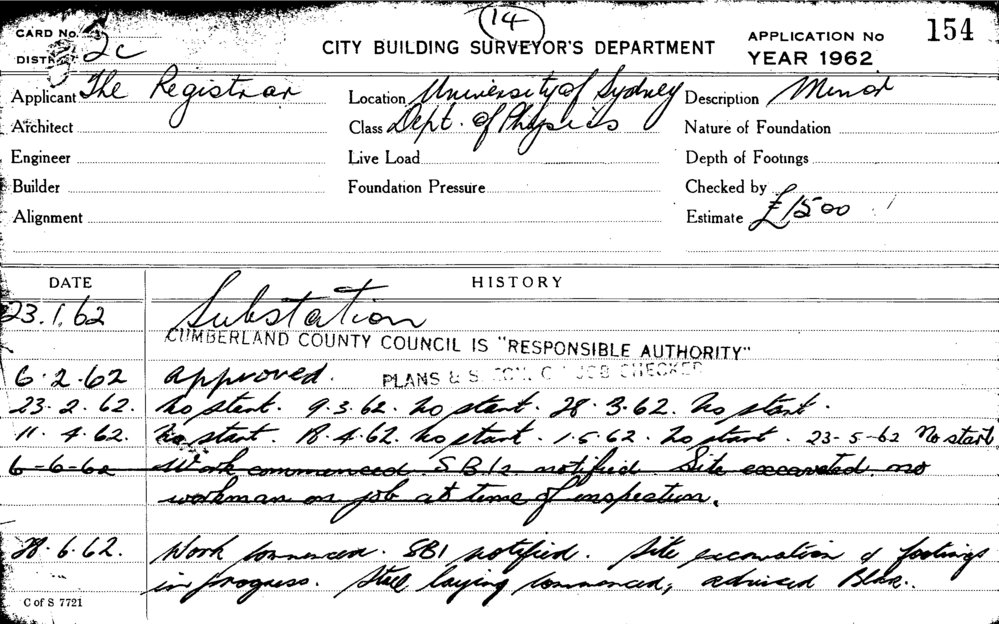 14
CARD No. 2c CITY BUILDING SURVEYOR'S DEPARTMENT APPLICATION No 154
DISTRICT YEAR 1962
Applicant The Registrar Location University of Sydney Description Minor
Architect Class Dept. of Physics Nature of Foundation
Engineer Live Load Depth of Footings
Builder Foundation Pressure Checked by
Alignment Estimate £1500
DATE HISTORY
23.1.62 Substation
CUMBERLAND COUNTY COUNCIL IS "RESPONSIBLE AUTHORITY"
6.2.62 approved. PLANS & S JOB CHECKER
23.2.62. No start. 9.3.62. No start. 28.3.62. No start.
11.4.62. No start. 18.4.62. No start. 1.5.62. No start. 23-5-62 No start
6-6-62 Work commenced. S.B.I. notified. Site excavated. no
workman on job at time of inspection.
28.6.62. Work commenced. SBI notified. Site excavation & footings
in progress. Steel laying commenced; advised Bldr.
C of S 7721